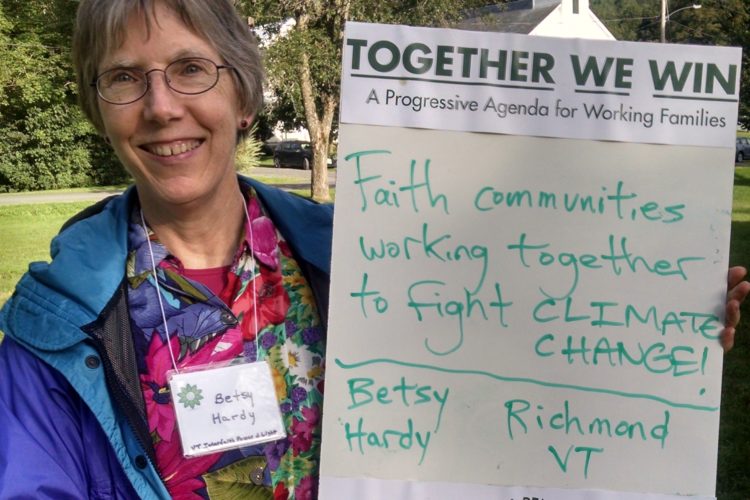 TOGETHER WE WIN
A Progressive Agenda for Working Families
Faith communities
working together
to fight CLIMATE
CHANGE!
Betsy
Hardy
Richmond
VT
Betsy
Hardy
VT Interfaith Power & Light